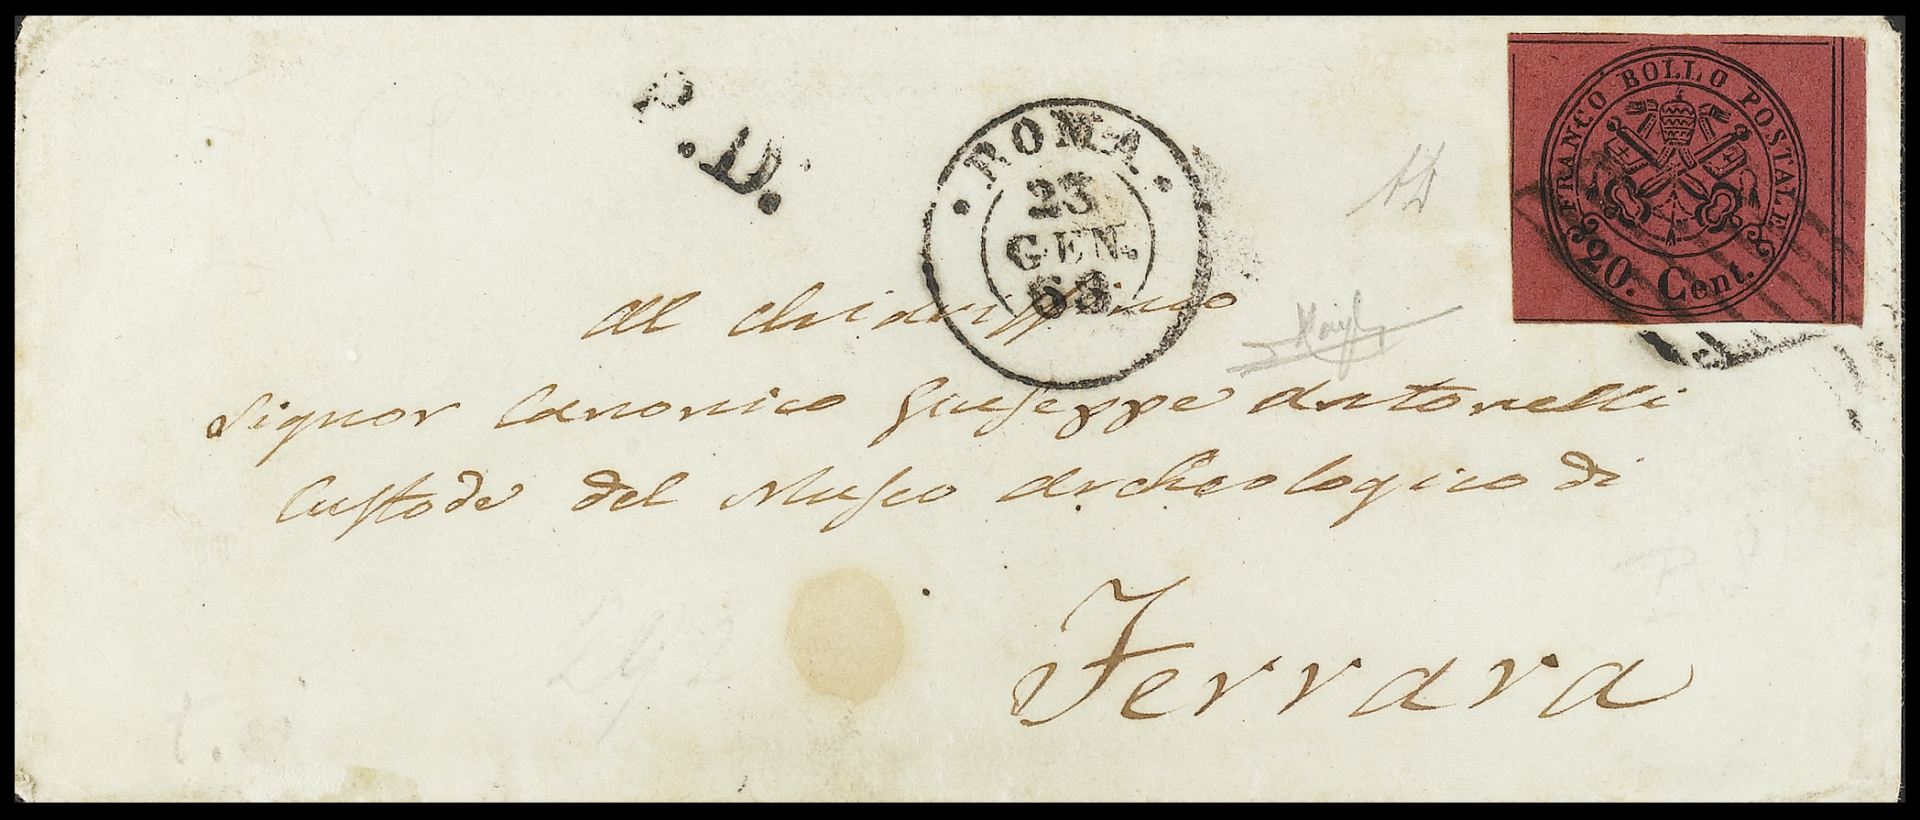 P.D.
ROMA
23
GEN.
68
FRANCO BOLLO POSTALE
20. Cent.
Al Chiarissimo
Signor Canonico Giuseppe Antonelli
Custode del Museo Archeologico di
Ferrara
292